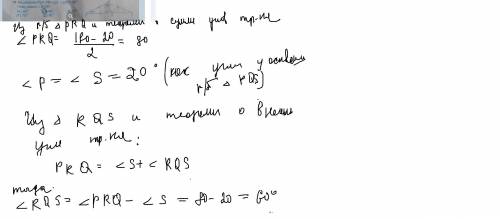 Из р/б △ PRQ и теоремы о сумме углов тр-ка
∠ PRQ = (180 - 20)/2 = 80
∠ P = ∠ S = 20° (как углы у основания
р/б △ PQS)
Из △ RQS и теоремы о внешн
угле тр-ка:
PRQ = ∠ S + ∠ RQS
тогда:
∠ RQS = ∠ PRQ - ∠ S = 80 - 20 = 60°